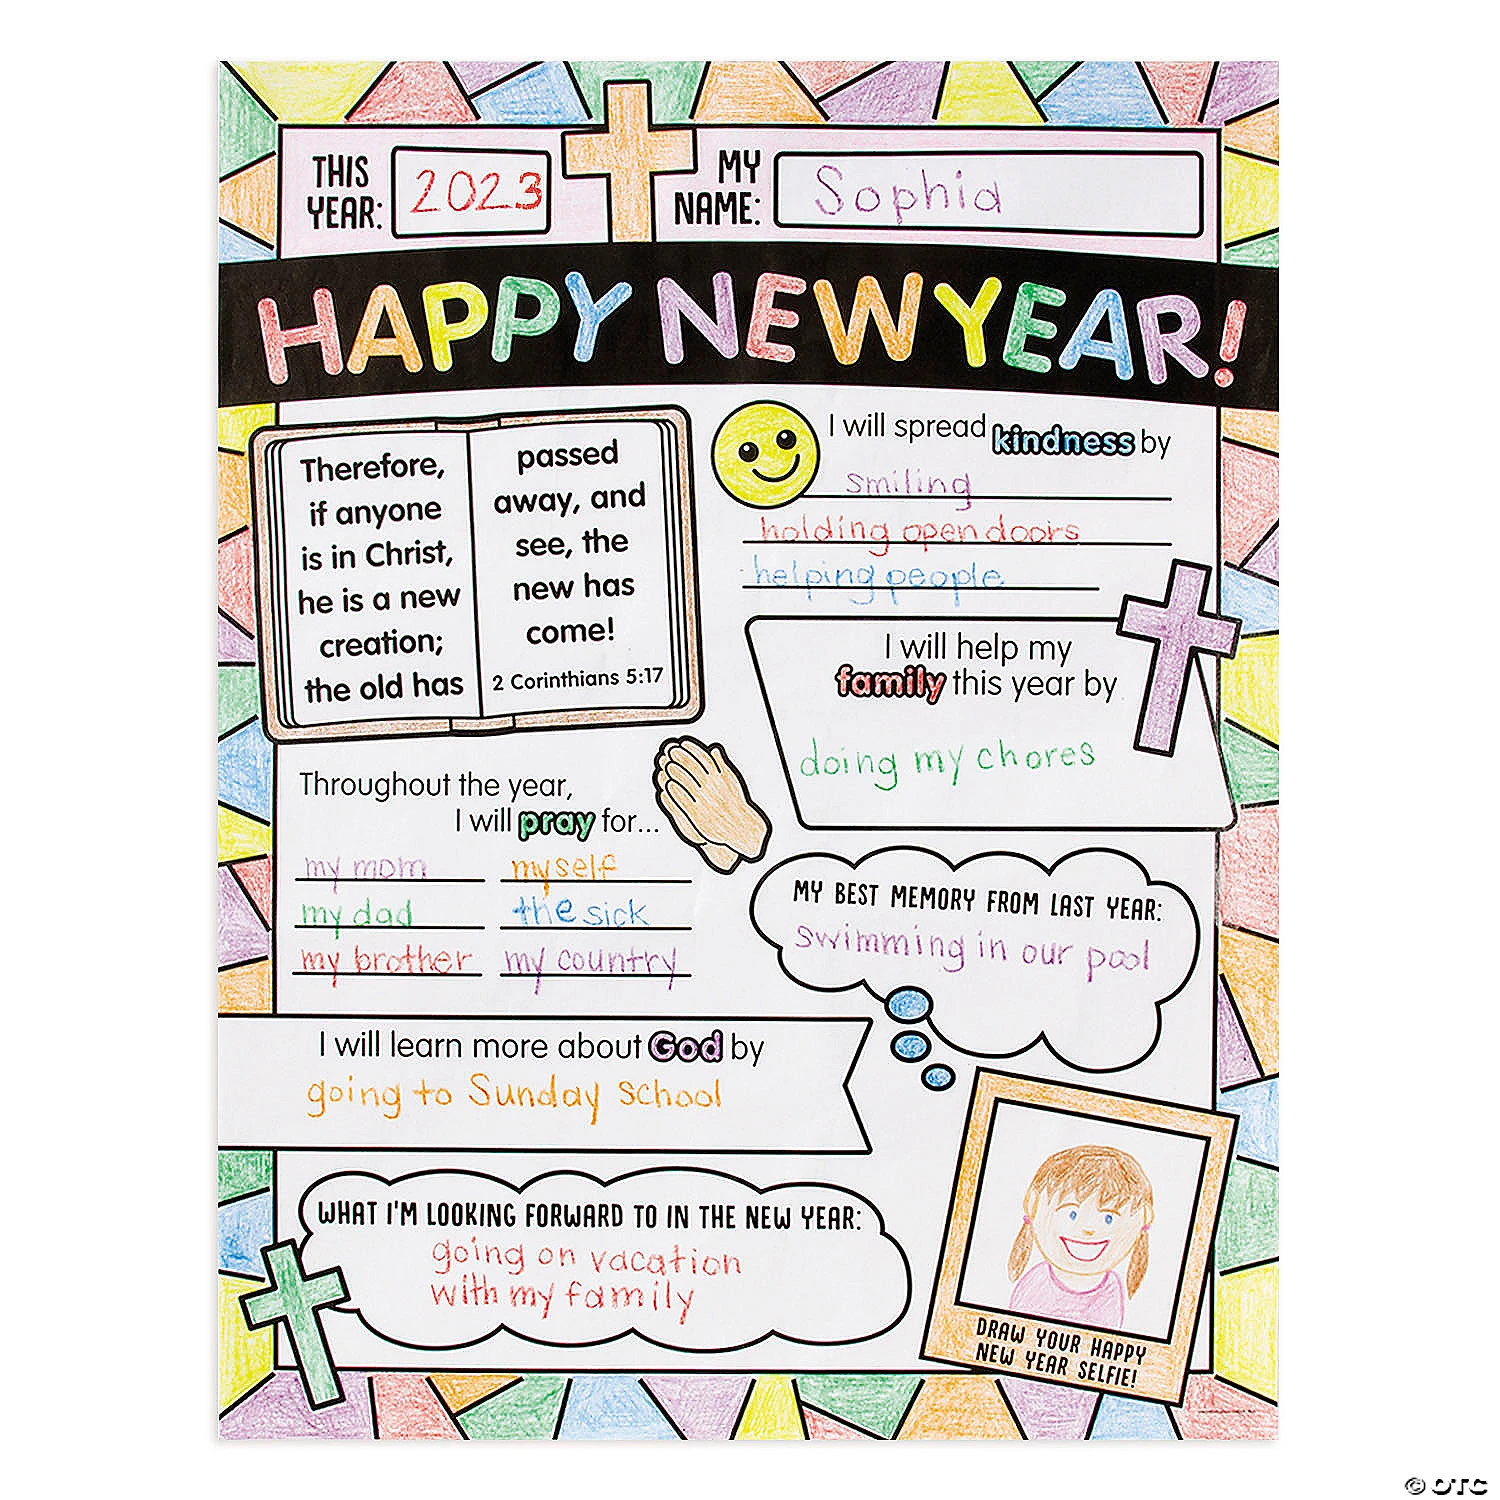 THIS
YEAR:
2023
MY
NAME:
Sophia
HAPPY NEW YEAR!
Therefore,
if anyone
is in Christ,
he is a new
creation;
the old has
passed
away, and
see, the
new has
come!
2 Corinthians 5:17
I will spread kindness by
smiling
holding open doors
helping people
I will help my
family this year by
doing my chores
Throughout the year,
I will pray for...
my mom
my dad
my brother
myself
the sick
my country
MY BEST MEMORY FROM LAST YEAR:
swimming in our pool
I will learn more about God by
going to Sunday school
WHAT I'M LOOKING FORWARD TO IN THE NEW YEAR:
going on vacation
with my family
DRAW YOUR HAPPY
NEW YEAR SELFIE!
© OTC